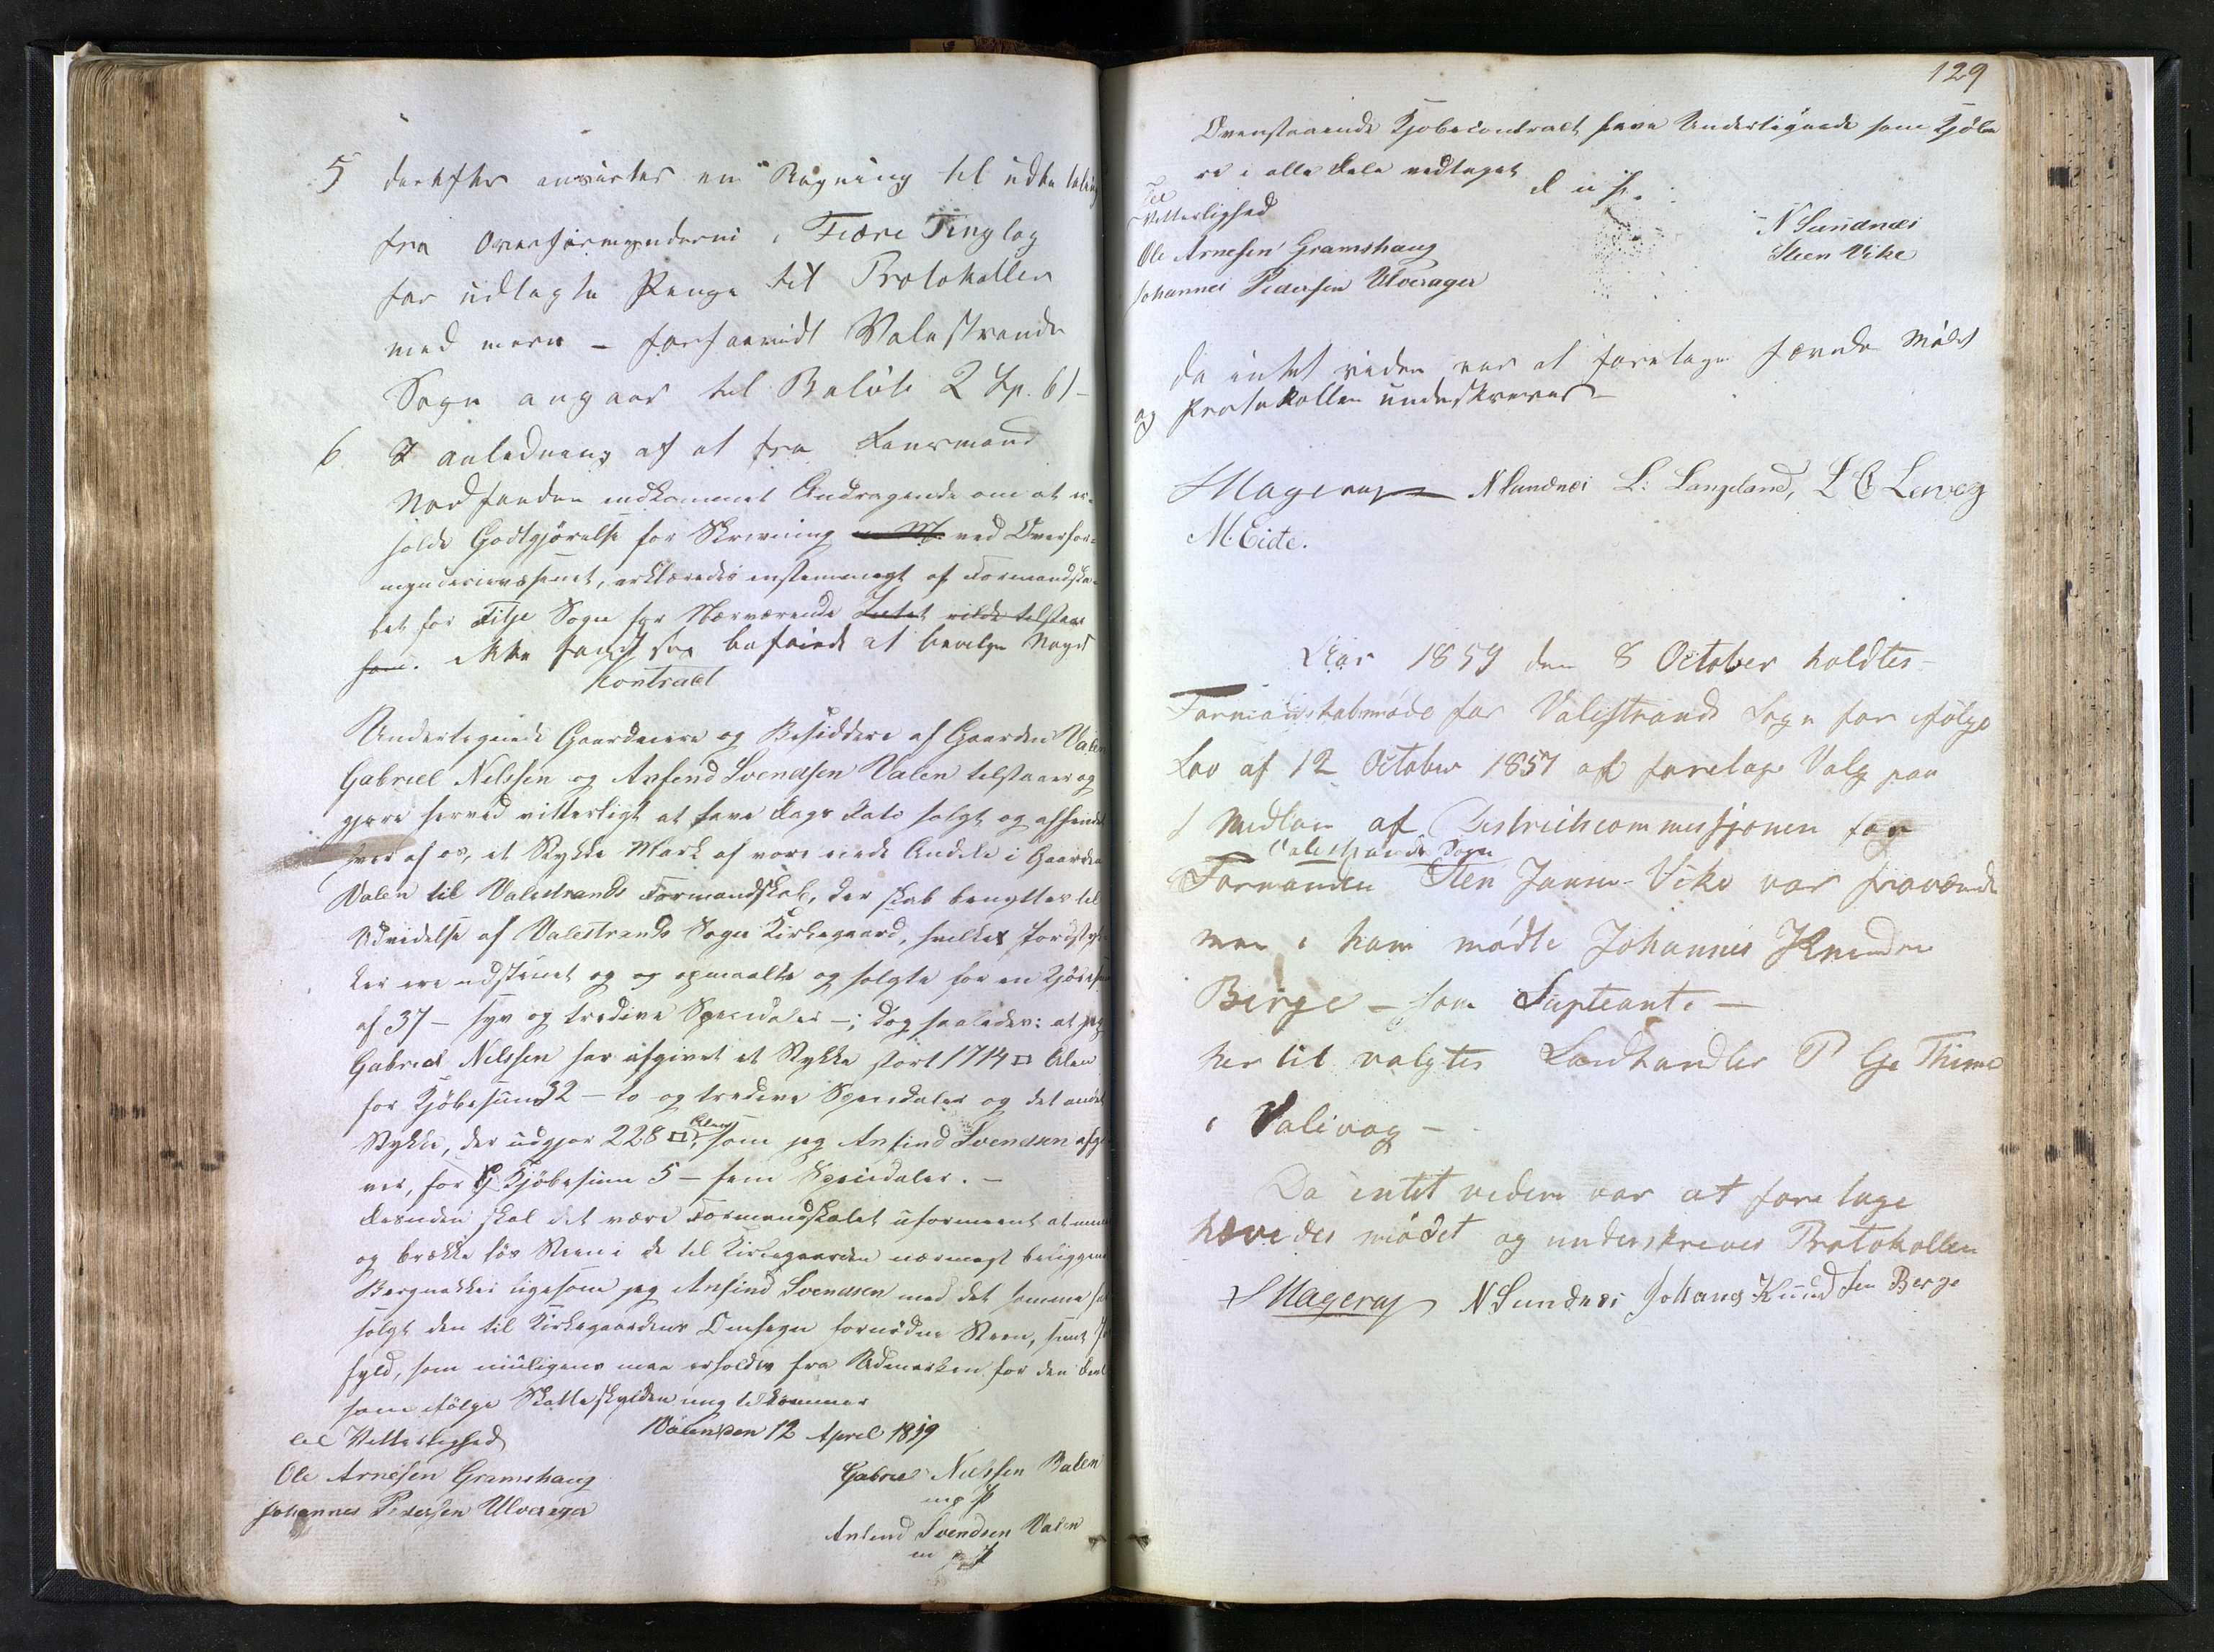 5 derefter anvistes en Regning til udbetaling
fra Overformynderne i Fiære Tinglag
for udlagte Penge til Protokoller
med mere – forsaavidt Valestrands
Sogn angaar til Beløb 2 Sp. 61 –
6. I anledning af at fra Lensmand
indkommet Andragende om at er-
holde Godtgjørelse for Skrivning ved Overfor-
mynderievæsenet, erklæredes enstemmegt af Formandska-
bet for Fitje Sogn for Nærværende Intet vilde tilstaaes
ham. ikke fandt sig beføiede at bevilge Noget
Kontract
Undertegnede Gaardeiere og Besiddere af Gaarden Valen
Gabriel Nilssen og Anfind Svendsen Valen tilstaar og
gjøre herved vitterligt at have Dags Dato solgt og afhændet
hver af os, et Stykke Mark af vore eiede Andele i Gaarden
Valen til Valestrands Formandskab, der skal benyttes til
Udvidelse af Valestrands Sogns Kirkegaard, hvilket Jordstyk-
ker ere udstukket og og opmaalte og solgte for en Kjøbesum
af 37 – syv og tredive Speciedaler –; dog saaledes: at jeg
Gabriel Nilssen har afgivet et Stykke stort 1714 □ Alen
for Kjøbesum 32 – to og tredive Speciedaler og det andet
Stykke, der udgjør 228 □ Alen, som jeg Anfind Svendsen afgi-
ver, for Kjøbesum 5 – fem Speciedaler. –
Desuden skal det være Formandskabet uformeent at
og brække løs Steen i de til Kirkegaarden nærmest beliggende
Bergnakker ligesom jeg Anfind Svendsen med det samme har
solgt den til Kirkegaardens Omhegn fornødne Steen, samt
fyld, som muligens maa erholdes fra Udmarken for den Deel
som ifølge Skatteskylden mig tilkommer
Valen den 12 April 1859
til Vitterlighed
Ole Arnesen Gramshaug
Johannes Pedersen Ulverager
Gabriel Nielssen Valen
m p P
Anfind Svendsen Valen
m p P
129
Ovenstaaende Kjøbecontract have Undertegnede som Kjøbe
re i alle Dele vedtaget
D u s.
Til
Vitterlighed
Ole Arnesen Gramshaug
Johannes Pedersen Ulverager
N Sundnæs
Steen Vike
da intet viden var at foretage hævedes Mødet
og Protokollen underskreves –
N Sundnæs L: Langeland,
M. Eide.
Aar 1859 den 8 October holdtes –
Formandskabsmøde for Valestrands Sogn for ifølge
Lov af 12 October 1857 at foretage Valg paa
1 Medlem af Districtscommissjonen for
Valestrands Sogn
Formanden Sten Jansen Vike var fraværende
men i hans mødte Johannes Knudsen
Berge – som Supleant. –
her til valgtes Landhandler P Thime
i Valevag –
Da intet videre var at fore tage
hævedes mødet og underskreves Protokollen
N Sundnæs Johannes Knudsen Berge